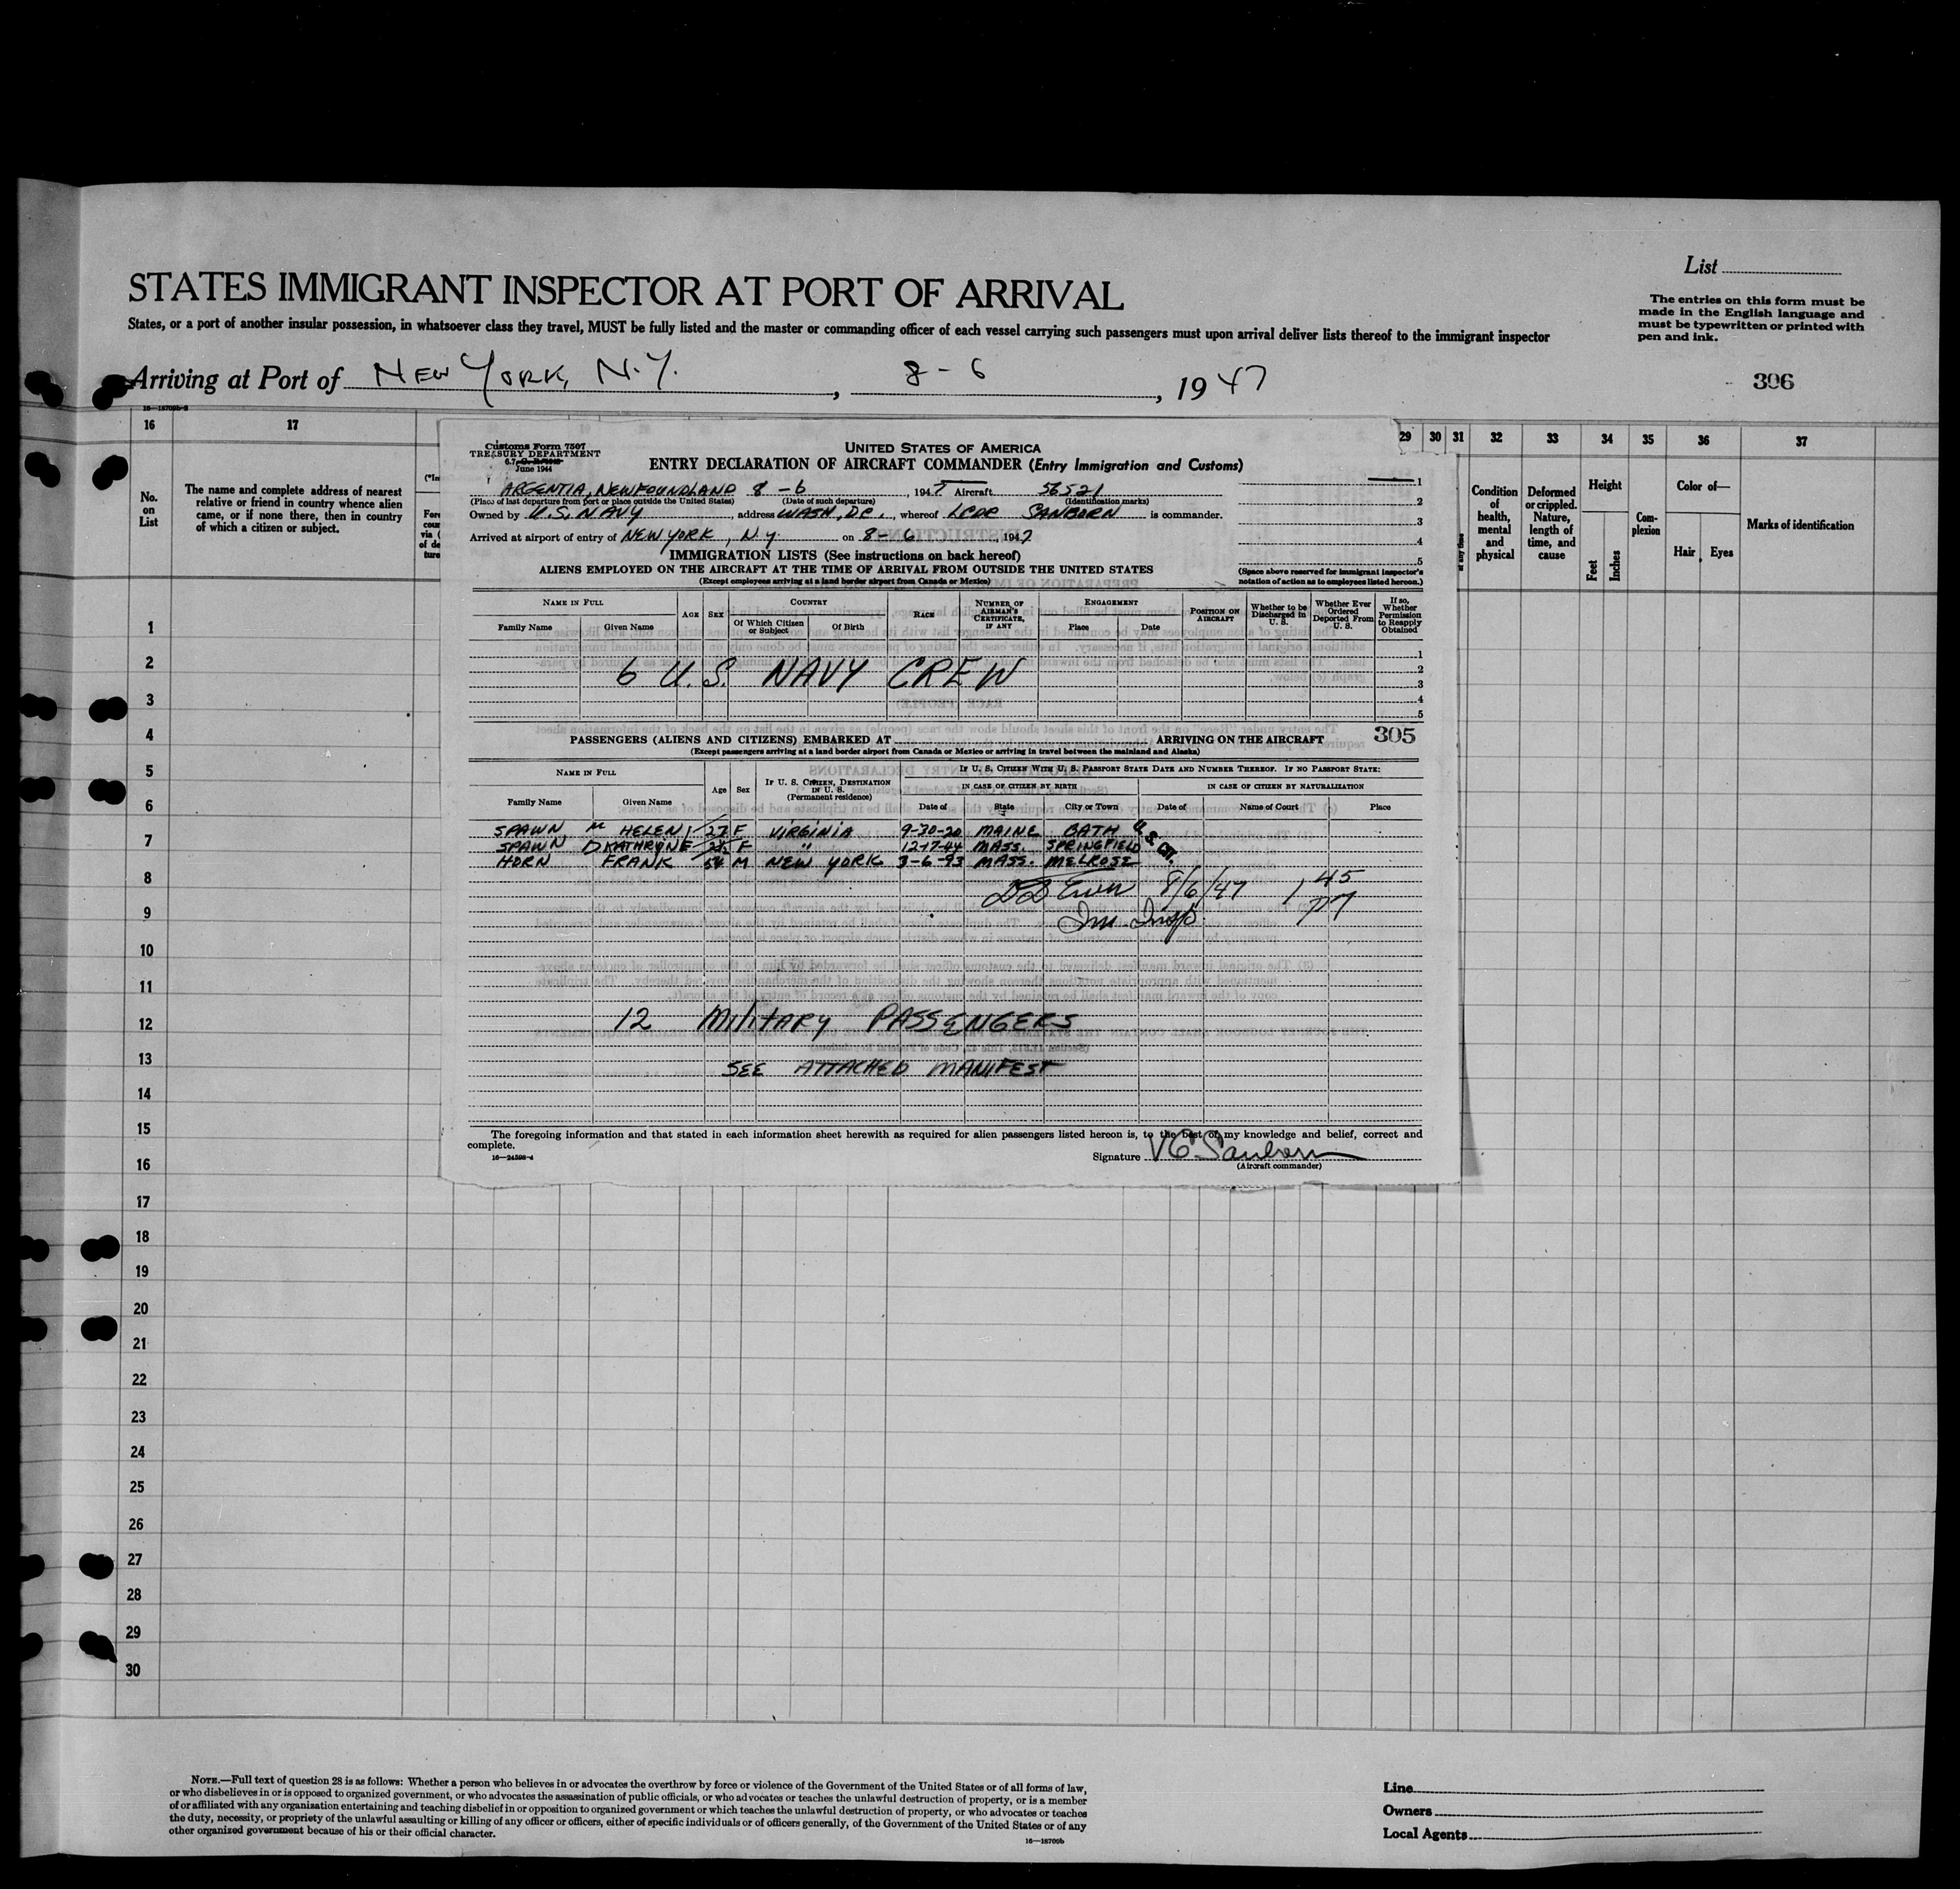 List
STATES IMMIGRANT INSPECTOR AT PORT OF ARRIVAL
The entries on this form must be
made in the English language and
must be typewritten or printed with
pen and ink.
States, or a port of another insular possession, in whatsoever class they travel, MUST be fully listed and the master or commanding officer of each vessel carrying such passengers must upon arrival deliver lists thereof to the immigrant inspector
Arriving at Port of NEW YORK, N.Y. , 8-6 , 1947
306
16 17 29 30 31 32 33 34 35 36 37
No. on List
The name and complete address of nearest
relative or friend in country whence alien
came, or if none there, then in country
of which a citizen or subject.
Condition of health, mental and physical
Deformed or crippled. Nature, length of time, and cause
Height
Feet
Inches
Complexion
Color of—
Hair Eyes
Marks of identification
Customs Form 7507
TREASURY DEPARTMENT
June 1944
UNITED STATES OF AMERICA
ENTRY DECLARATION OF AIRCRAFT COMMANDER (Entry Immigration and Customs)
ARGENTIA, NEWFOUNDLAND 8-6 , 1947 Aircraft 56521
(Place of last departure from port or place outside the United States) (Date of such departure) (Identification marks)
Owned by U.S. NAVY , address WASH, DC. , whereof LCDR SANBORN is commander.
Arrived at airport of entry of NEW YORK, N.Y. on 8-6 , 1947
IMMIGRATION LISTS (See instructions on back hereof)
ALIENS EMPLOYED ON THE AIRCRAFT AT THE TIME OF ARRIVAL FROM OUTSIDE THE UNITED STATES
(Except employees arriving at a land border airport from Canada or Mexico)
1
2
3
4
5
(Space above reserved for immigrant inspector's
notation of action as to employees listed hereon.)
NAME IN FULL
Family Name Given Name
AGE SEX
COUNTRY
Of Which Citizen or Subject Of Birth
RACE
NUMBER OF AIRMAN'S CERTIFICATE, IF ANY
ENGAGEMENT
Place Date
POSITION ON AIRCRAFT
Whether to be Discharged in U. S.
Whether Ever Ordered Deported From U. S.
If so, Whether Permission to Reapply Obtained
1
2
3
4
5
6 U.S. NAVY CREW
PASSENGERS (ALIENS AND CITIZENS) EMBARKED AT ARRIVING ON THE AIRCRAFT 305
(Except passengers arriving at a land border airport from Canada or Mexico or arriving in travel between the mainland and Alaska)
NAME IN FULL
Family Name Given Name
Age Sex
IF U. S. CITIZEN, DESTINATION IN U. S. (Permanent residence)
IF U. S. CITIZEN WITH U. S. PASSPORT STATE DATE AND NUMBER THEREOF. IF NO PASSPORT STATE:
IN CASE OF CITIZEN BY BIRTH IN CASE OF CITIZEN BY NATURALIZATION
Date of State City or Town Date of Name of Court Place
SPAWN, M HELEN 27 F VIRGINIA 9-30-20 MAINE BATH
SPAWN D KATHRYNE F " 12-17-44 MASS. SPRINGFIELD
HORN FRANK 54 M NEW YORK 3-6-93 MASS. MELROSE
8/6/47
12 MILITARY PASSENGERS
SEE ATTACHED MANIFEST
The foregoing information and that stated in each information sheet herewith as required for alien passengers listed hereon is, to the best of my knowledge and belief, correct and
complete.
16—24598-4
Signature V C Sanborn
(Aircraft commander)
1
2
3
4
5
6
7
8
9
10
11
12
13
14
15
16
17
18
19
20
21
22
23
24
25
26
27
28
29
30
NOTE.—Full text of question 28 is as follows: Whether a person who believes in or advocates the overthrow by force or violence of the Government of the United States or of all forms of law,
or who disbelieves in or is opposed to organized government, or who advocates the assassination of public officials, or who advocates or teaches the unlawful destruction of property, or is a member
of or affiliated with any organization entertaining and teaching disbelief in or opposition to organized government or which teaches the unlawful destruction of property, or who advocates or teaches
the duty, necessity, or propriety of the unlawful assaulting or killing of any officer or officers, either of specific individuals or of officers generally, of the Government of the United States or of any
other organized government because of his or their official character.
16—18709b
Line
Owners
Local Agents